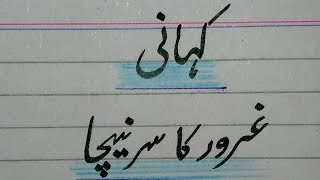 کہانی
غرور کا سر نیچا